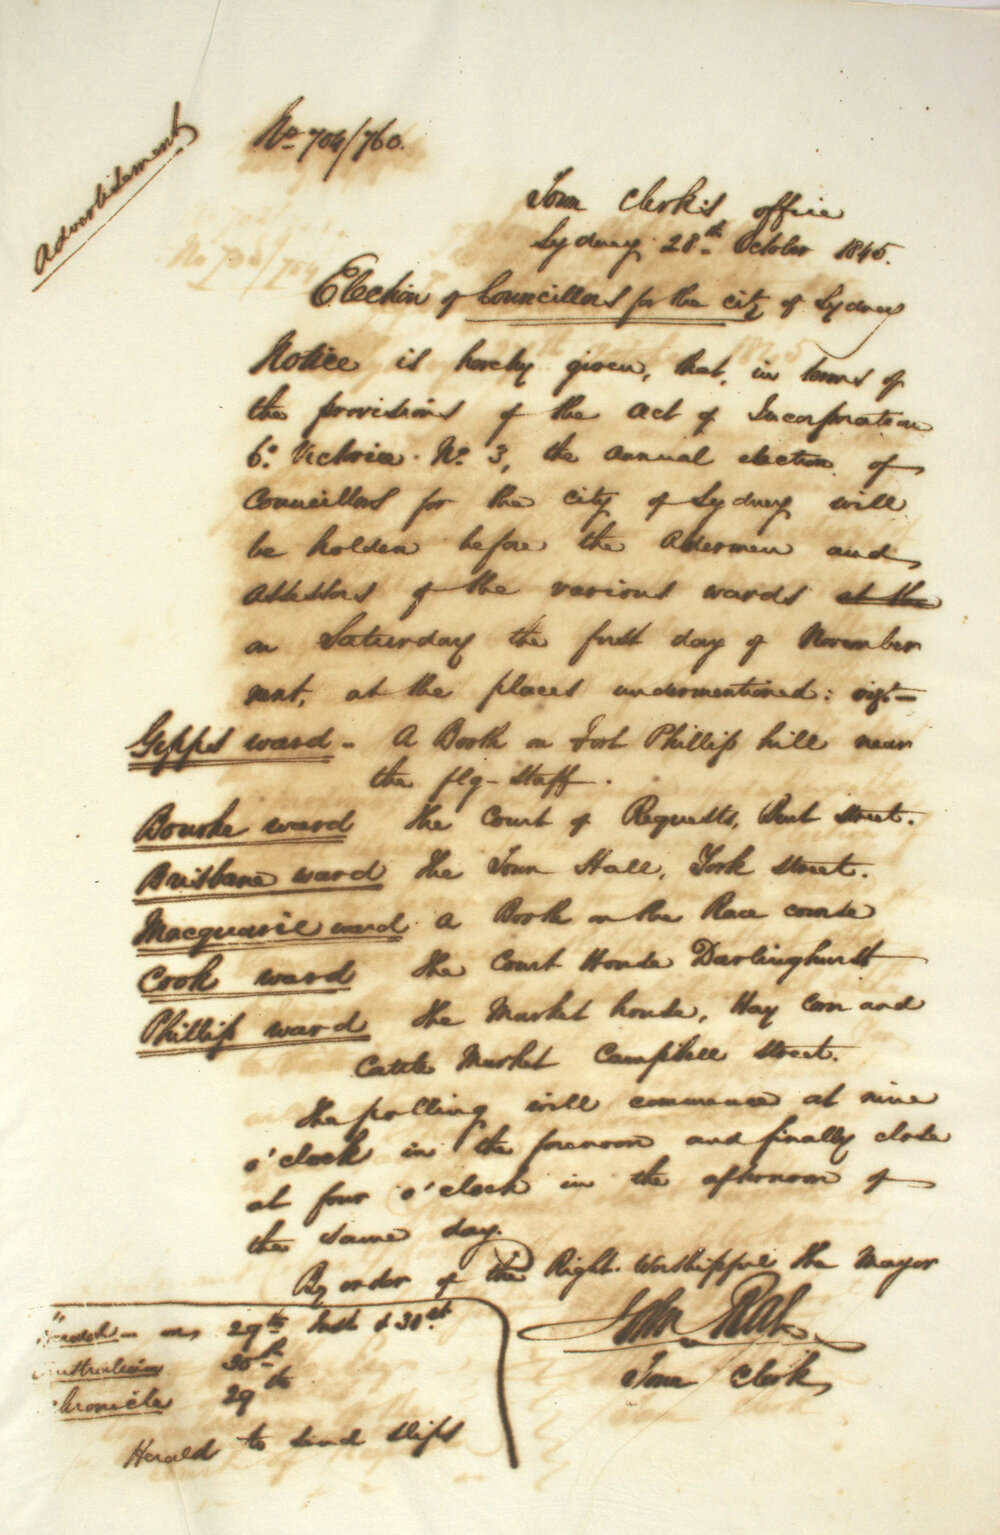 Advertisement
No 704/760.
Town Clerk's office
Sydney 28th October 1845.
Election of Councillors for the city of Sydney
Notice is hereby given, that, in terms of
the provisions of the Act of Incorporation
6o. Victoria No. 3, the annual election of
Councillors for the city of Sydney will
be holden before the Aldermen and
Assessors of the various wards at the
on Saturday the first day of November
next, at the places undermentioned: vizt.—
Gipps ward - A Booth on Fort Phillip hill near
the flg-staff.
Bourke ward the Court of Requests, Bent Street.
Brisbane ward the Town Hall, York Street.
Macquarie ward a Booth on the Race course
Cook ward the Court House Darlinghurst
Phillip ward the Market house, Hay Corn and
Cattle Market Campbell Street.
The polling will commence at nine
o'clock in the forenoon and finally close
at four o'clock in the afternoon of
the same day.
By order of the Right Worshipful the Mayor
John Rae
Town Clerk
on 29th Inst & 31st
Australian 30th
Chronicle 29th
Herald to send slips